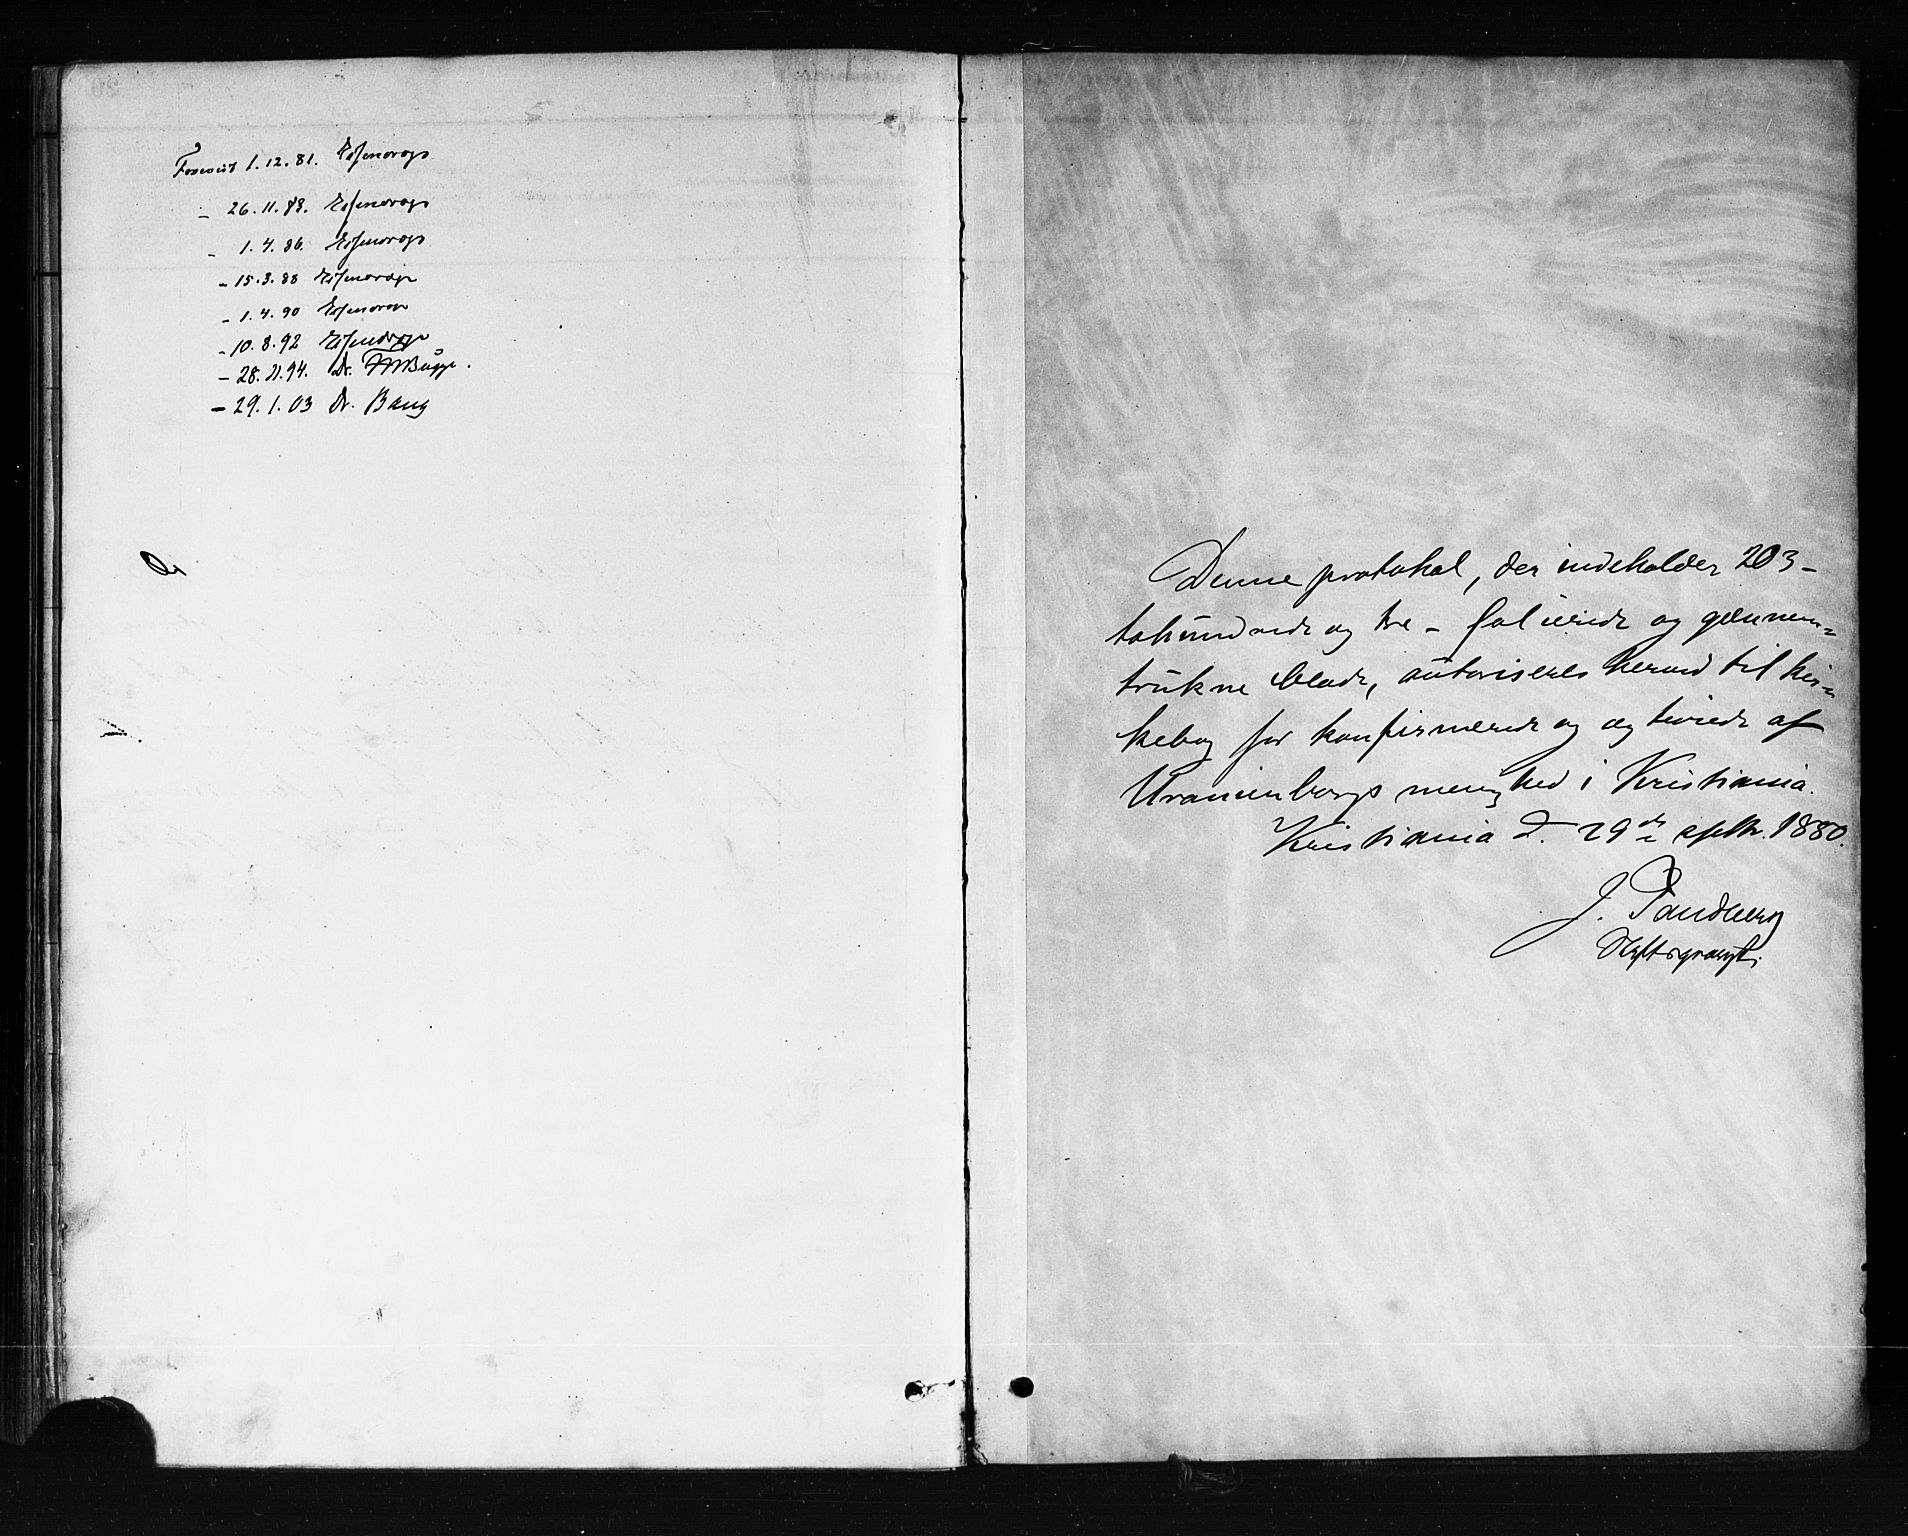 Forevist 1.12.81. Essendrop
- 26.11.83. Essendrop
- 1.4.86. Essendrop
- 15.3.88 Essendrop
- 1.4.90 Essendrop
- 10.8.92 Essendrop
- 28.11.94. Dr. FWBugge.
- 29.1.03 Dr. Bang
Denne protokol, der indeholder 203-
tohundrede og tre - folierede og gjennem-
trukne blade, autoriseres herved til kir-
kebog for konfirmerede og ægteviede af
Uranienborgs menighed i Kristiania.
Kristiania d. 29de septbr. 1880.
J. Sandberg
Stiftsprovst.